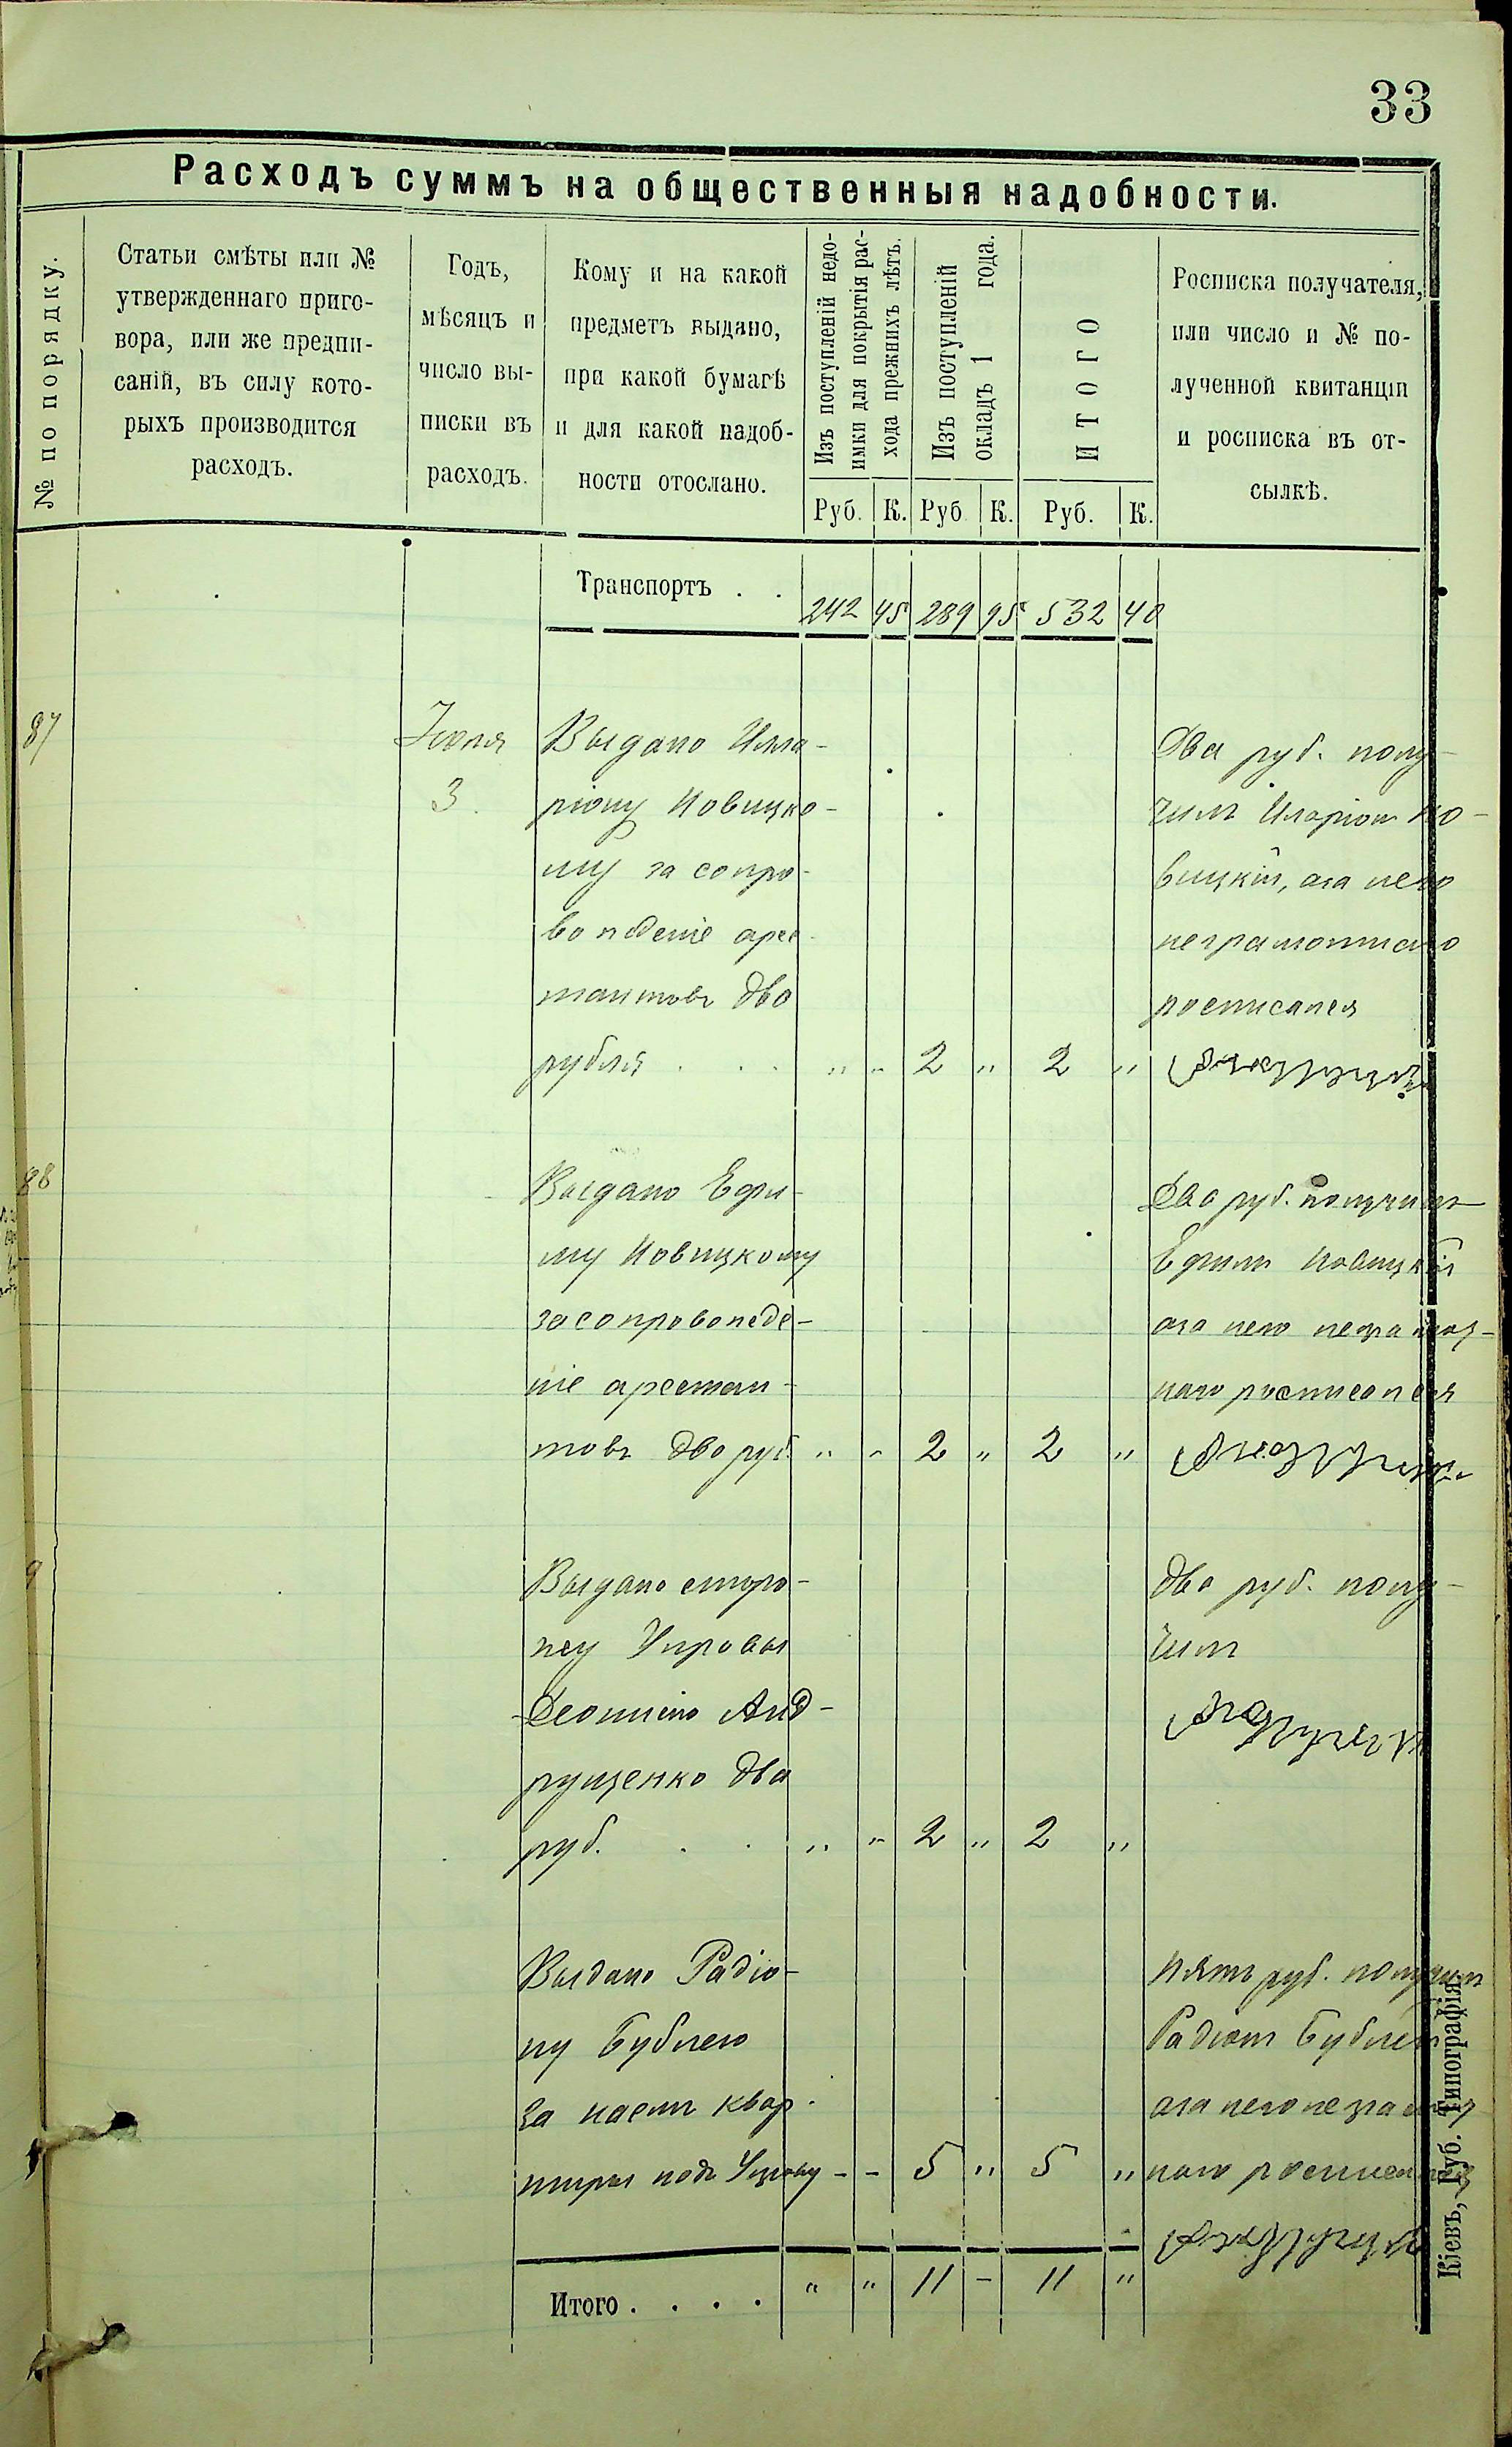 33
Расходъ суммъ на общественныя надобности.
№ по порядку.
Статьи смѣты или №
утвержденнаго приго-
вора, или же предпи-
саній, въ силу кото-
рыхъ производится
расходъ.
Годъ,
мѣсяцъ и
число вы-
писки въ
расходъ.
Кому и на какой
предметъ выдано,
при какой бумагѣ
и для какой надоб-
ности отослано.
Изъ поступленій недо-
имки для покрытія рас-
хода прежнихъ лѣтъ.
Изъ поступленій
окладъ 1 года.
ИТОГО
Руб. К. Руб. К. Руб. К.
Росписка получателя,
или число и № по-
лученной квитанціи
и росписка въ от-
сылкѣ.
Транспортъ . . 242 45 289 95 532 40
87 Іюля Выдано Илла-
3. ріону Новицко-
му за сопро-
вожденіе арес-
тантовъ два
рубля . . . „ „ 2 „ 2 „
Два руб. полу-
чилъ Иларіон Но-
вицкій, а за него
неграмотнаго
росписался
88 Выдано Ефи-
му Новицкому
за сопровожде-
ніе арестан-
товъ два руб. „ „ 2 „ 2 „
Два руб. получилъ
Ефимъ Новицкій
а за него неграмот-
наго росписался
9 Выдано сторо-
жу Управы
Леонтію Анд-
рущенко два
руб. . . „ „ 2 „ 2 „
Два руб. полу-
чилъ
Выдано Радіо-
ну Бублею
за наемъ квар-
тиры подъ Управу - - 5 „ 5 „
Пять руб. получилъ
Радіонъ Бублей
а за него неграмот
наго росписался
Итого . . . . „ „ 11 - 11 „
Кіевъ, Губ. Типографія.